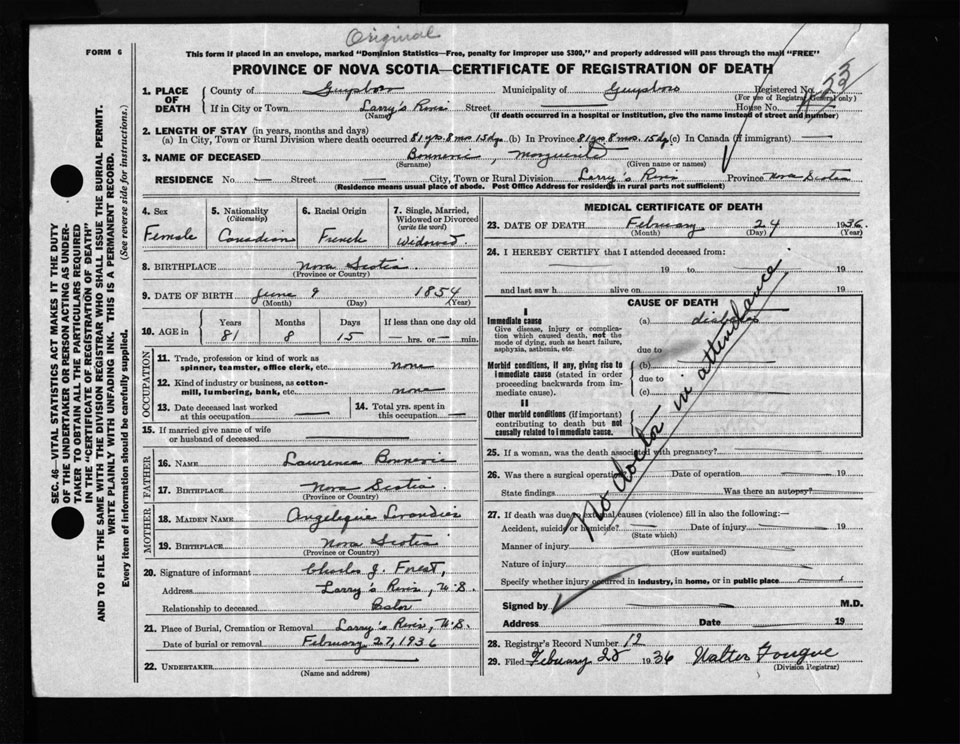 Original
FORM 6
This form if placed in an envelope, marked "Dominion Statistics—Free, penalty for improper use $300," and properly addressed will pass through the mail "FREE"
PROVINCE OF NOVA SCOTIA—CERTIFICATE OF REGISTRATION OF DEATH
SEC. 46—VITAL STATISTICS ACT MAKES IT THE DUTY
OF THE UNDERTAKER OR PERSON ACTING AS UNDER-
TAKER TO OBTAIN ALL THE PARTICULARS REQUIRED
IN THE "CERTIFICATE OF REGISTRATION OF DEATH"
AND TO FILE THE SAME WITH THE DIVISION REGISTRAR WHO SHALL ISSUE THE BURIAL PERMIT.
WRITE PLAINLY WITH UNFADING INK. THIS IS A PERMANENT RECORD.
Every item of information should be carefully supplied. (See reverse side for instructions.)
1. PLACE OF DEATH County of Guysboro Municipality of Guysboro Registered No.
(For use of Registrar General only)
If in City or Town Larry's River Street House No.
(Name) (If death occurred in a hospital or institution, give the name instead of street and number)
2. LENGTH OF STAY (in years, months and days)
(a) In City, Town or Rural Division where death occurred 81 yrs. 8 mos. 15 dys. (b) In Province 81 yrs. 8 mos. 15 dys. (c) In Canada (if immigrant)
3. NAME OF DECEASED Bonnevie, Marguerite
(Surname) (Given name or names)
RESIDENCE No. — Street — City, Town or Rural Division Larry's River Province Nova Scotia
(Residence means usual place of abode. Post Office Address for residents in rural parts not sufficient)
4. Sex Female
5. Nationality (Citizenship) Canadian
6. Racial Origin French
7. Single, Married, Widowed or Divorced (write the word) Widowed.
8. BIRTHPLACE Nova Scotia
(Province or Country)
9. DATE OF BIRTH June 9 1854
(Month) (Day) (Year)
10. AGE in Years 81 Months 8 Days 15 If less than one day old — hrs. or — min.
OCCUPATION
11. Trade, profession or kind of work as spinner, teamster, office clerk, etc. none
12. Kind of industry or business, as cotton-mill, lumbering, bank, etc. none
13. Date deceased last worked at this occupation —
14. Total yrs. spent in this occupation —
15. If married give name of wife or husband of deceased —
FATHER
16. NAME Lawrence Bonnevie
17. BIRTHPLACE Nova Scotia
(Province or Country)
MOTHER
18. MAIDEN NAME Angelique
19. BIRTHPLACE Nova Scotia
(Province or Country)
20. Signature of informant Charles J. Forest,
Address Larry's River, N.S.
Relationship to deceased Pastor
21. Place of Burial, Cremation or Removal Larry's River, N.S.
Date of burial or removal February 27, 1936
22. UNDERTAKER
(Name and address)
MEDICAL CERTIFICATE OF DEATH
23. DATE OF DEATH February 24 1936.
(Month) (Day) (Year)
24. I HEREBY CERTIFY that I attended deceased from:
19 to 19
and last saw h alive on 19
CAUSE OF DEATH
I
Immediate cause (a) diabetes
Give disease, injury or complication which caused death, not the mode of dying, such as heart failure, asphyxia, asthenia, etc.
due to
Morbid conditions, if any, giving rise to immediate cause (stated in order proceeding backwards from immediate cause). (b)
due to
(c)
II
Other morbid conditions (if important) contributing to death but not causally related to immediate cause.
No doctor in attendance
25. If a woman, was the death associated with pregnancy?
26. Was there a surgical operation Date of operation 19
State findings Was there an autopsy?
27. If death was due to external causes (violence) fill in also the following:—
Accident, suicide or homicide? Date of injury 19
(State which)
Manner of injury
(How sustained)
Nature of injury
Specify whether injury occurred in industry, in home, or in public place
Signed by M.D.
Address Date 19
28. Registrar's Record Number 12
29. Filed Febuary 28 1936 Walter Fougue
(Division Registrar)